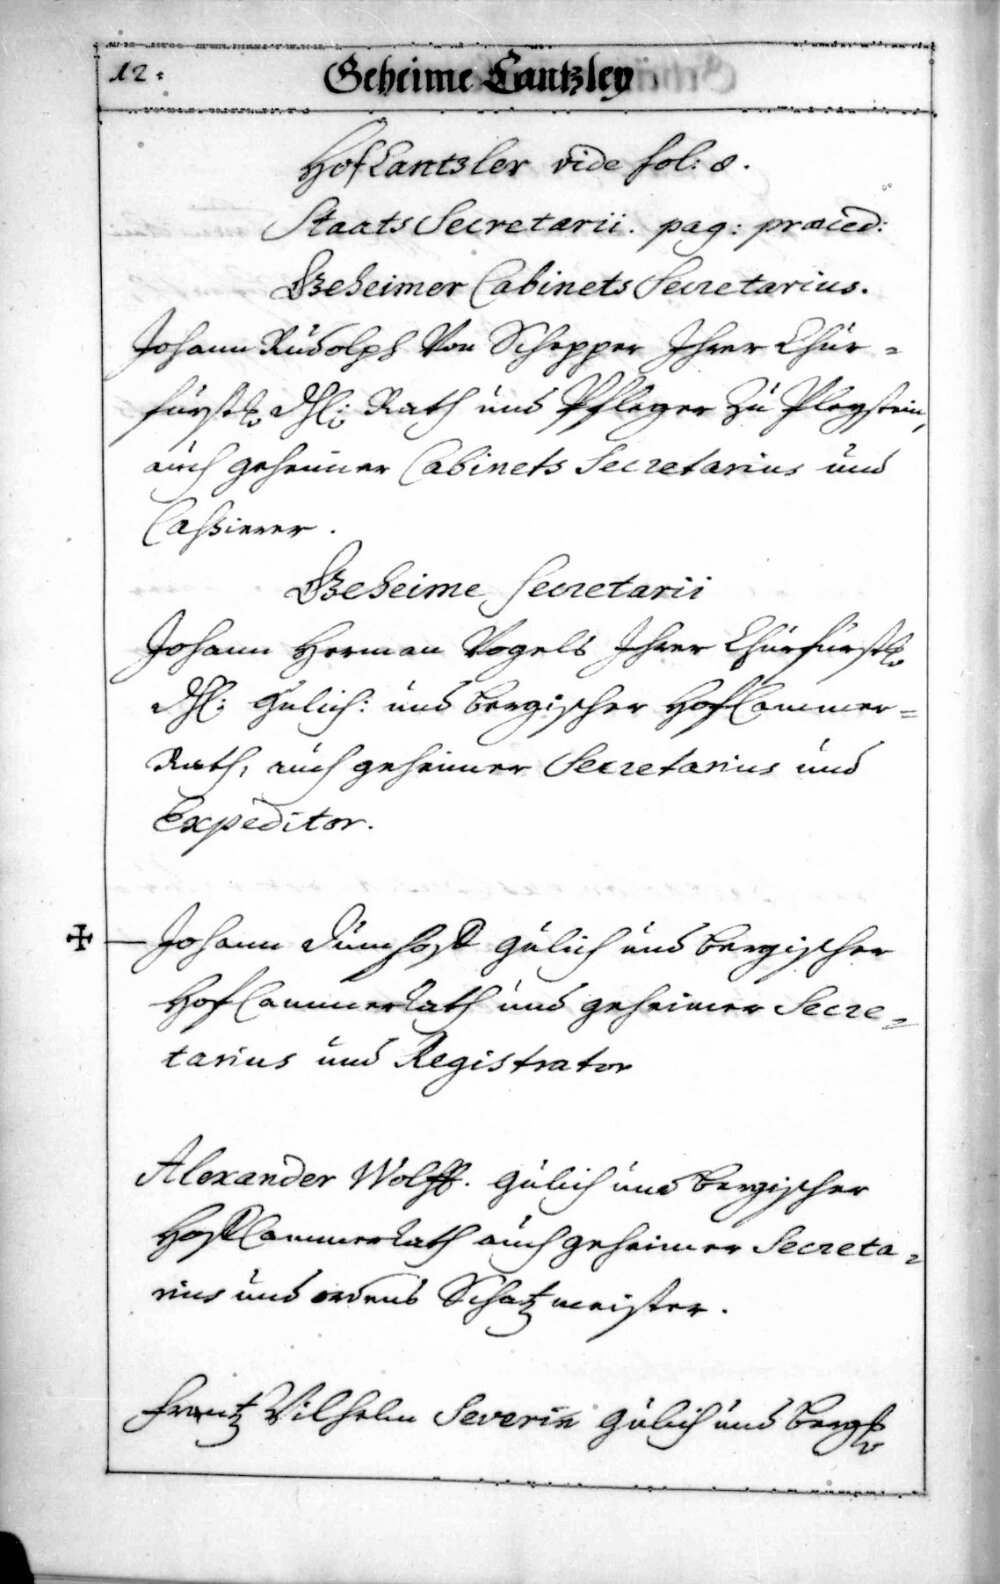 12.
Geheime Cantzley
HofCantzler vide fol: 8.
Staats Secretarii. pag: præced:
Geheimer Cabinets Secretarius.
Johann Rudolph Von Schepper Ihrer Chur=
fürstl. Dhl: Rath und Pfleger zu Pleystein,
auch geheimer Cabinets Secretarius und
Cassierer.
Geheime Secretarii
Johann Herman Vogels Ihrer Churfürstl.
Dhl: Gülich: und bergischer HofCammer=
Rath, auch geheimer Secretarius und
Expeditor.
Johann Gülich und bergischer
HofCammerRath und geheimer Secre=
tarius und Registrator
Alexander Wolff. Gülich und bergischer
HofCammerRath auch geheimer Secreta=
rius und ordens Schatzmeister.
Frantz Wilhelm Severin Gülich und berg.